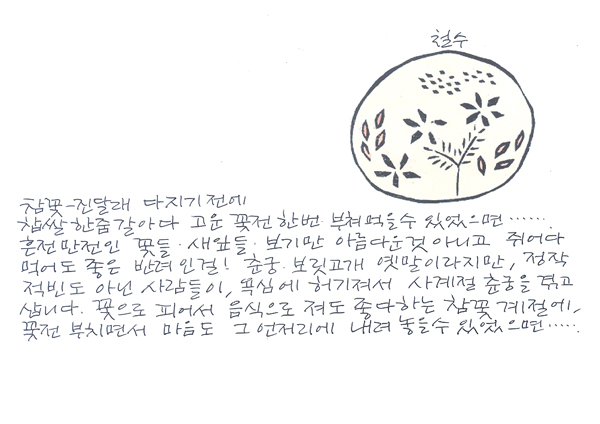 철수
참꽃-진달래 다지기전에
찹쌀한줌갈아다 고운 꽃전 한번 부쳐먹을수 있었으면……
흔전만전인 꽃들·새잎들·보기만 아름다운것아니고 쥐어다
먹어도 좋은 반려인걸! 춘궁·보릿고개 옛말이라지만, 정작
적빈도 아닌 사람들이, 욕심에 허기져서 사계절 춘궁을 겪고
삽니다. 꽃으로 피어서 음식으로 져도 좋다하는 참꽃계절에,
꽃전 부치면서 마음도 그언저리에 내려 놓을수 있었으면……